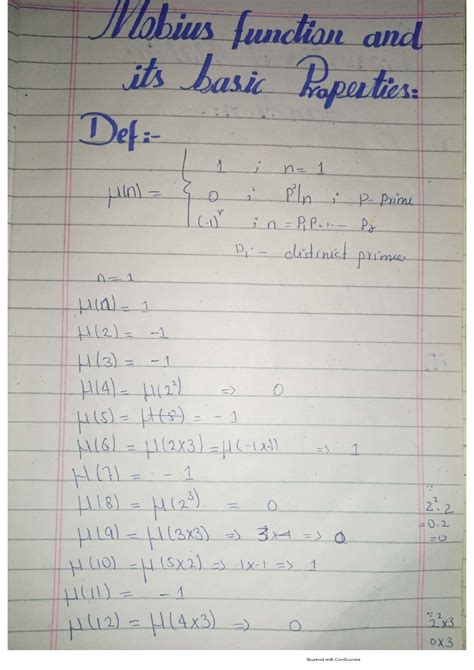 Mobius function and
its basic Properties:-
Def:-
1 ; n=1
μ(n) = { 0 ; p²|n ; p- prime
(-1)ʳ ; n = P₁P₂ --- Pᵣ
Pᵢ :- distinict primes
n=1
μ(1) = 1
μ(2) = -1
μ(3) = -1
μ(4) = μ(2²) => 0
μ(5) = μ(5) = -1
μ(6) = μ(2x3) = μ(-1x-1) => 1
μ(7) = -1
μ(8) = μ(2³) = 0
∵ 2².2
=0.2
=0
μ(9) = μ(3x3) => => 0
μ(10) = μ(5x2) => -1x-1 => 1
μ(11) = -1
μ(12) = μ(4x3) => 0
∵ 2²x3
0x3
Scanned with CamScanner